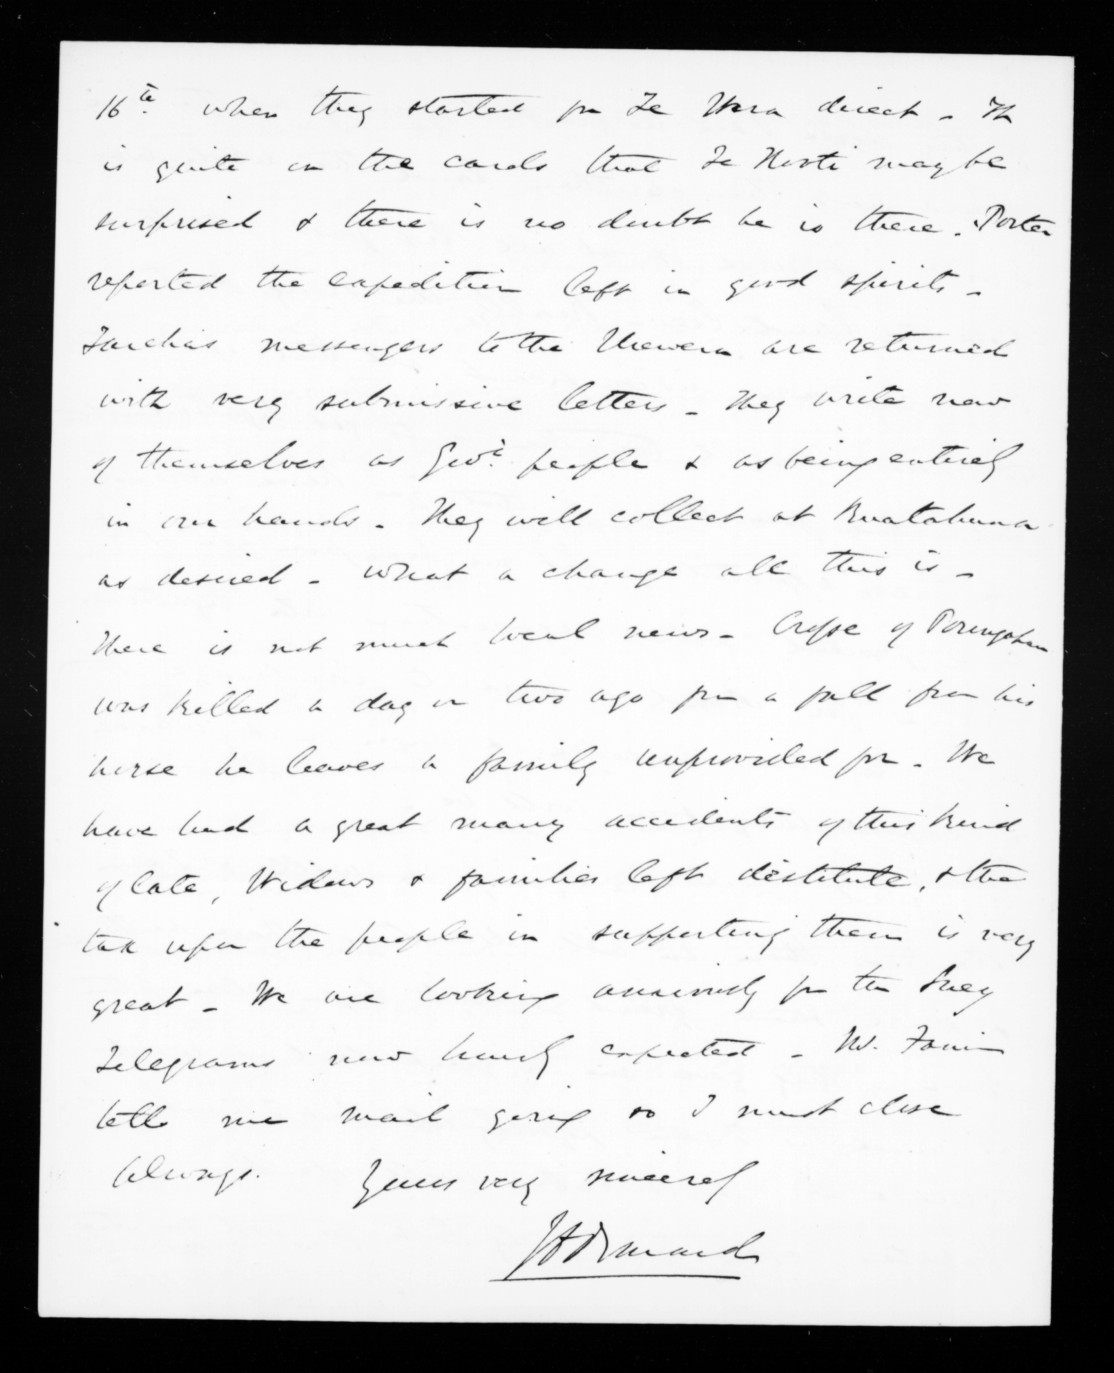 16th. when they started for Te Wera direct - It
is quite on the cards that Te Kooti may be
surprised & there is no doubt he is there. Porter
reported the expedition left in good spirits -
Tareha's messengers to the Urewera are returned
with very submissive letters - They write now
of themselves as Govt. people & as being entirely
in our hands - They will collect at Ruatahuna
as desired - What a change all this is -
There is not much local news - Crosse of Porangahau
was killed a day or two ago from a fall from his
horse he leaves a family unprovided for - We
have had a great many accidents of this kind
of late, Widows & families left destitute, & the
tax upon the people in supporting them is very
great - We are looking anxiously for the Suez
Telegrams now hourly expected - Mr. Fannin
tells me mail going so I must close
Always.   Yours very sincerely
JDOrmond